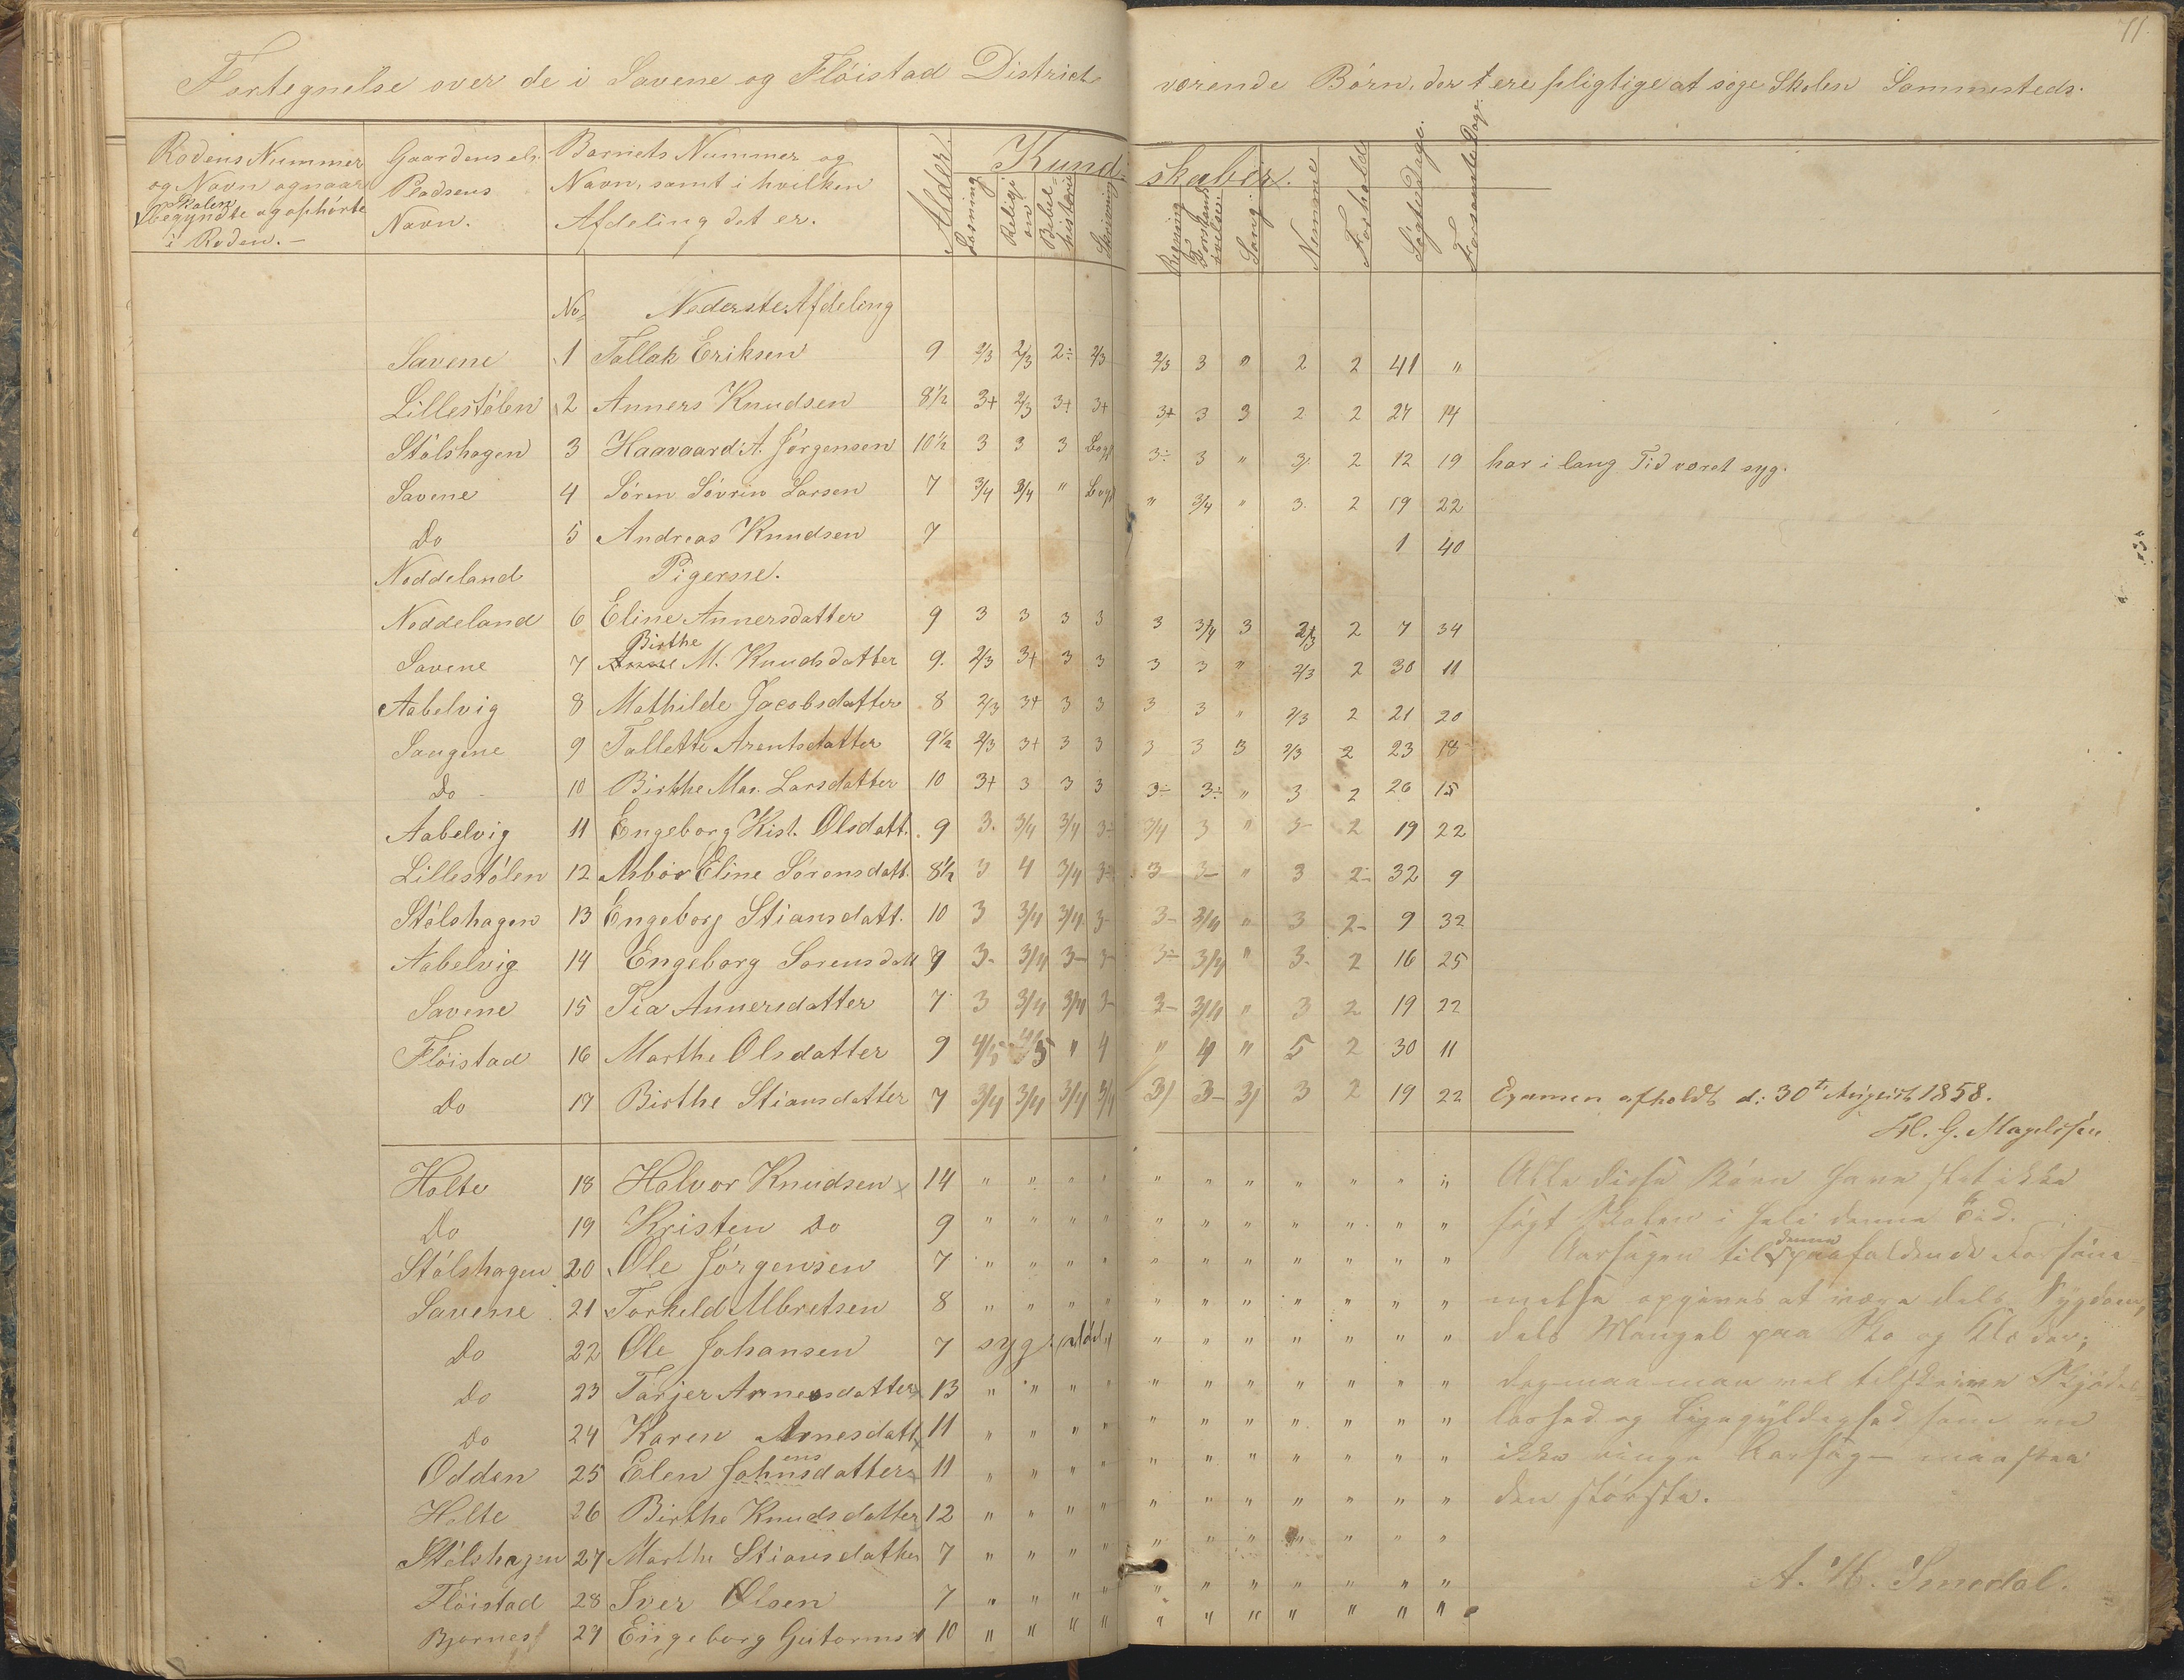 71.
Fortegnelse over de i Savene og Flöistad District værende Börn, der ere pligtige at söge Skolen Sammesteds.
Rodens Nummer og Navn og naar Skolen begyndte og ophörte i Roden. —
Gaardens elr. Pladsens Navn.
Barnets Nummer og Navn, samt i hvilken Afdeling det er.
Alder.
Kundskaber.
Læsning Religion Bibelhistorie Skrivning Regning Forstandsövelse Sang. Nemme Forholde Sögte Dage. Forsömte Dage.
No. Nederste Afdeling
Savene 1 Tallak Eriksen 9 2/3 2/3 2÷ 2/3 2/3 3 " 2 2 41 "
Lillestölen 2 Anners Knudsen 8½ 3+ 2/3 3+ 3+ 3+ 3 3 2 2 27 14
Stölshagen 3 Haavaard A. Jörgensen 10½ 3 3 3 Bogst 3÷ 3 " 3 2 12 19 har i lang Tid været syg.
Savene 4 Sören Sövrin Larsen 7 3/4 3/4 " Bogst " 3/4 " 3. 2 19 22
Do 5 Andreas Knudsen 7 1 40
Neddeland Pigerne.
Neddeland 6 Eline Annersdatter 9 3 3 3 3 3 3/4 3 2/3 2 7 34
Savene 7 Birthe M. Knudsdatter 9. 2/3 3+ 3 3 3 3 " 2/3 2 30 11
Aabelvig 8 Mathilde Jacobsdatter 8 2/3 3+ 3 3 3 3 " 2/3 2 21 20
Saugene 9 Tallette Arentsdatter 9½ 2/3 3+ 3 3 3 3 3 2/3 2 23 18
Do 10 Birthe Mar. Larsdatter 10 3+ 3 3 3 3÷ 3÷ " 3 2 26 15
Aabelvig 11 Engeborg Kist. Olsdatt. 9 3. 3/4 3/4 3÷ 3/4 3 " 3- 2 19 22
Lillestölen 12 Asbör Eline Sörensdatt. 8½ 3 4 3/4 3÷ 3 3- " 3 2- 32 9
Stölshagen 13 Engeborg Stiansdatt. 10 3 3/4 3/4 3- 3- 3/4 " 3 2- 9 32
Aabelvig 14 Engeborg Sorensdatt 9 3- 3/4 3- 3- 3÷ 3/4 " 3. 2 16 25
Savene 15 Tea Annersdatter 7 3 3/4 3/4 3- 3- 3/4 " 3 2 19 22
Flöistad 16 Marthe Olsdatter 9 4/5 4/5 " 4 " 4 " 5 2 30 11
Do 17 Birthe Stiansdatter 7 3/4 3/4 3/4 3/4 3/ 3- 3/ 3 2 19 22 Examen afholdt d: 30te August 1858.
H. G. Magelssen
Holte 18 Halvor Knudsen x 14 " " " " " " " " " " " Alle disse Börn have slet ikke
Do 19 Kristen Do 9 " " " " " " " " " " " sögt Skolen i hele denne Tid.
Stölshagen 20 Ole Jörgensen 7 " " " " " " " " " " " Aarsagen til denne paafaldende Forsöm-
Savene 21 Torkeld Albretsen 8 " " " " " " " " " " " melse opgives at være dels Sygdom,
Do 22 Ole Johansen 7 syg " " " " " " " dels Mangel paa Sko og Klæder;
Do 23 Tarjer Arnesdatter 13 " " " " " " " " " " " dog maa man vel tilskrive Skjödes-
Do 24 Karen Arnesdatt. 11 " " " " " " " " " " " löshed og Ligegyldighed som en
Odden 25 Elen Johnsdatter 11 " " " " " " " " " " " ikke ringe Aarsag — maaskee
ens
Holte 26 Birthe Knudsdatter 12 " " " " " " " " " " " den störste.
Stölshagen 27 Marthe Stiansdatter 7 " " " " " " " " " " "
A. H. Smedal.
Flöistad 28 Iver Olsen 7 " " " " " " " " " " "
Bjornes 29 Engeborg Gutormsd 10 " " " " " " " " " " "